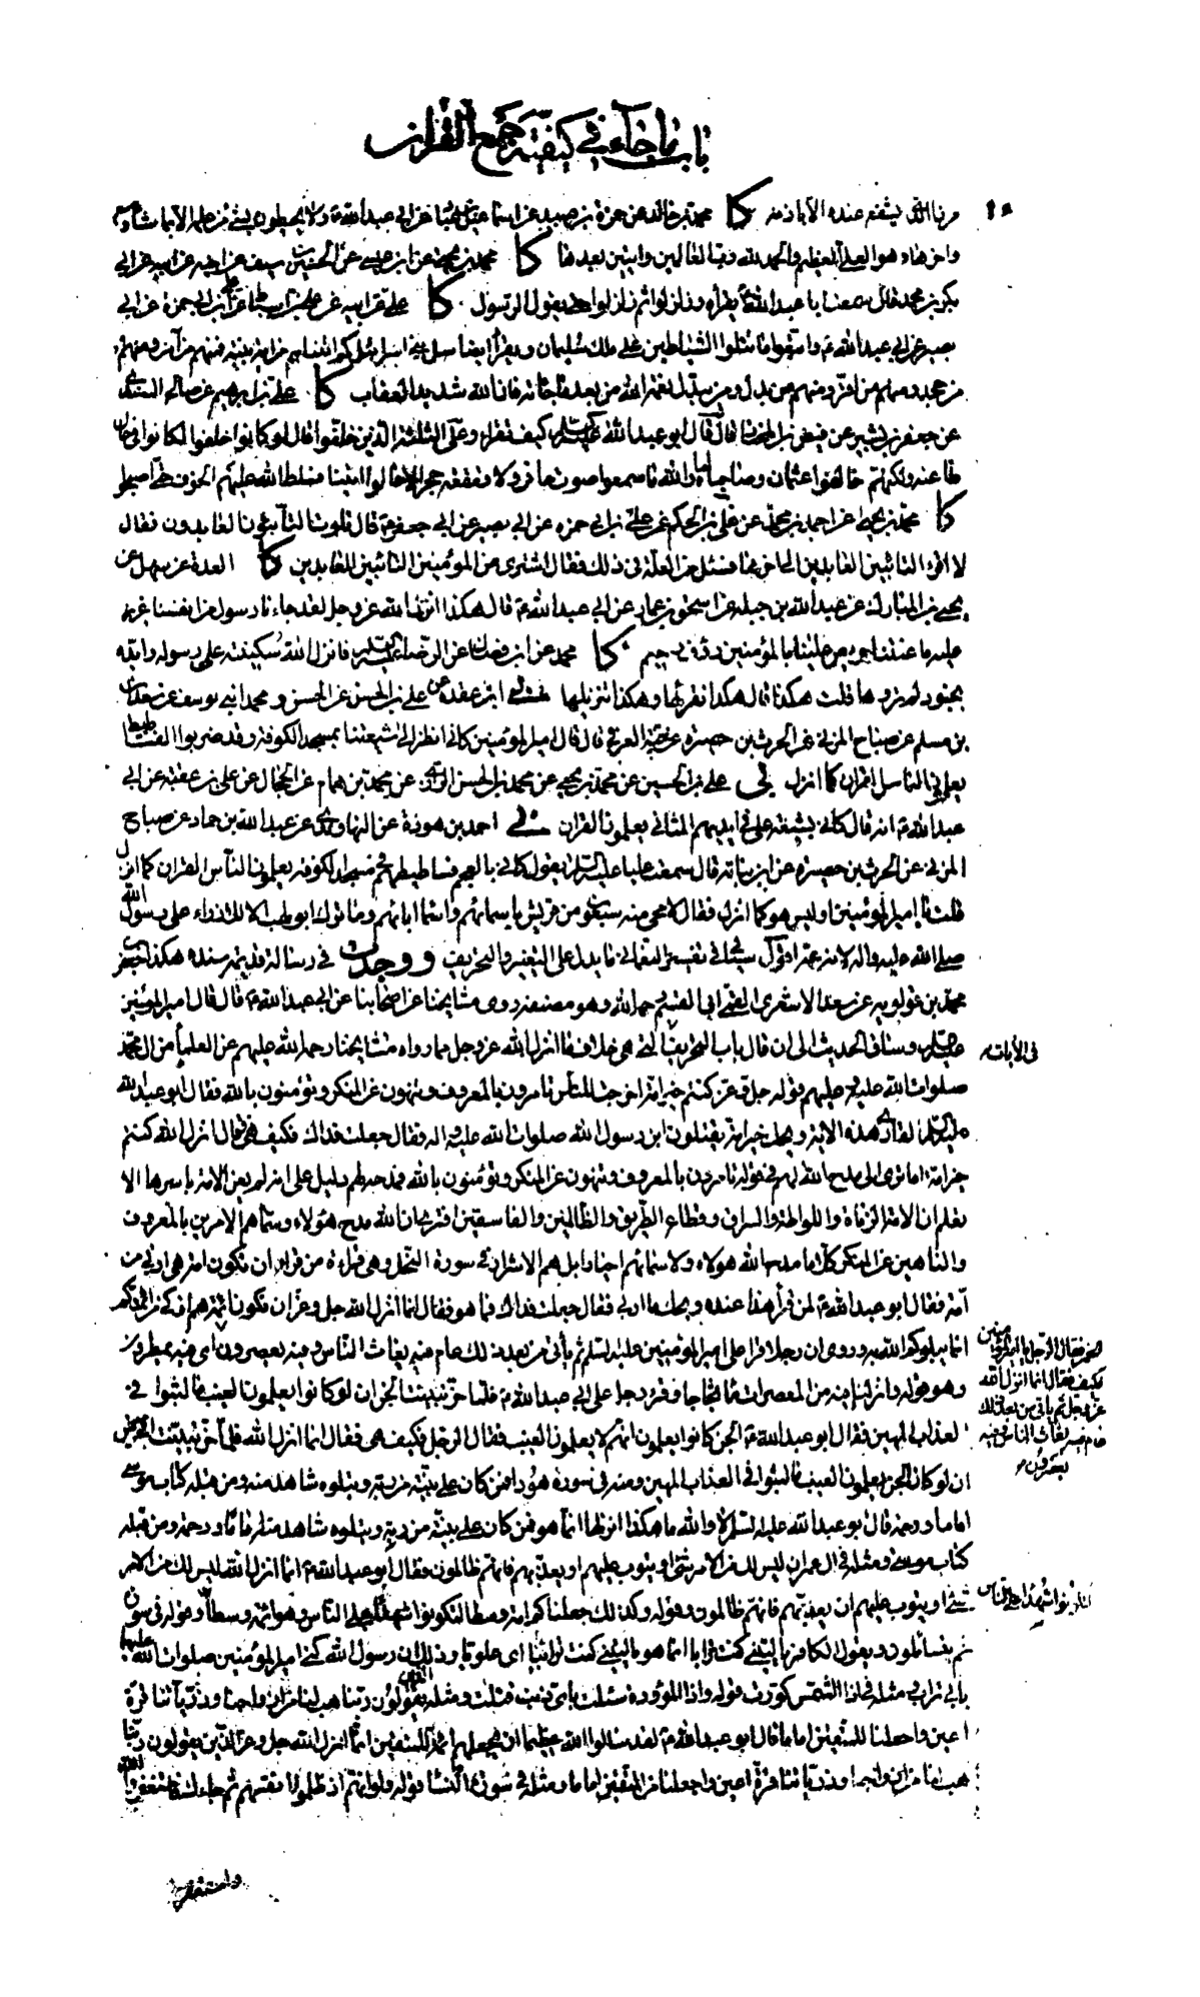 باب ما جاء في كيفية جمع القران
من ذا الذي يشفع عنده الا باذنه كا محمد بن خالد عن حمزة بن عبيد عن اسماعيل عن ابي عبد الله ولا يحيطون بشئ من علمه الا بما شاء
واخرها وهو العلي العظيم والحمد لله رب العالمين وايتين بعدها كا محمد بن عن ابن عيسى عن الحسين بن سيف عن اخيه عن ابيه عن ابي
بكر بن محمد قال سمعت ابا عبد الله يقرأ وزلزلوا ثم زلزلوا حتى يقول الرسول كا علي عن ابيه عن علي بن اسباط عن علي بن ابي حمزة عن ابي
بصير عن ابي عبد الله واتبعوا ما تتلوا الشياطين على ملك سليمان ويقرأ ايضا سل بني اسرائيل كم اتيناهم من اية بينة فمنهم من آمن ومنهم
من جحد ومنهم من اقر ومنهم من بدل ومن يبدل نعمة الله من بعد ما جائته فان الله شديد العقاب كا علي بن ابرهيم عن صالح السندي
عن جعفر بن بشير عن فيض بن المختار قال قال ابو عبد الله كيف تقراء وعلى الثلثة الذين خلفوا قال لو كانوا خلفوا لكانوا في حال
طاعة ولكنهم خالفوا عثمان وصاحباه اما والله ما سمعوا صوت حافر ولا قعقعة حجر الا قالوا اتينا فسلط الله عليهم الخوف حتى اصبحوا
كا محمد بن يحيى عن احمد بن محمد عن علي بن الحكم عن علي بن ابي حمزه عن ابي بصير عن ابي جعفر قال تلوت التائبون العابدون فقال
لا اقرء التائبين العابدين الى اخرها فسئل عن العلة في ذلك فقال اشترى من المؤمنين التائبين العابدين كا العدة عن سهل عن
يحيى بن المبارك عن عبد الله بن جبله عن اسحق بن عمار عن ابي عبد الله قال هكذا انزل الله عز وجل لقد جاءنا رسول من انفسنا عزيز
عليه ما عنتنا حريص علينا بالمؤمنين رؤف رحيم كا محمد عن ابن فضال عن الرضا فانزل الله سكينته على رسوله وايده
بجنود لم تروها قلت هكذا قال هكذا نقرئها وهكذا تنزيلها ني ابن عقده عن علي بن الحسن عن الحسن و محمد ابني يوسف عن سعدان
بن مسلم عن صباح المزني عن الحرث بن حصيرة عن حبة العرني قال قال امير المؤمنين كاني انظر الى شيعتنا بمسجد الكوفة وقد ضربوا الفساطيط
يعلمون الناس القران كما انزل ني علي بن الحسين عن محمد بن يحيى عن محمد بن الحسن الرازي عن محمد بن عن الحجال عن علي بن عقبة عن ابي
عبد الله انه قال كاني بشيعة علي في ايديهم المثاني يعلمون القران ني احمد بن هوذة عن النهاوندي عن عبد الله بن حماد عن صباح
المزني عن الحرث بن حصيرة عن ابن نباته قال سمعت عليا يقول كاني بالعجم فساطيطهم في مسجد الكوفه يعلمون الناس القران كما انزل
قلت يا امير المؤمنين اوليس هو كما انزل فقال لا محي منه سبعون من قريش باسمائهم واسماء ابائهم وما ترك ابو لهب الا للازراء على رسول الله
صلى الله عليه واله لانه عمه اقول سيجئ في تفسير النعماني ما يدل على التغيير والتحريف ووجدت في رسالة قديمه سنده هكذا جعفر
محمد بن قولويه عن سعد الاشعري القمي ابي القسم رحمه الله وهو مصنفه روى مشايخنا عن اصحابنا عن ابي عبد الله قال قال امير المؤمنين
وساق الحديث الى ان قال باب التحريف في الايات التي هي خلاف ما انزل الله عز وجل مما رواه مشايخنا رحمة الله عليهم عن العلماء من ال محمد
صلوات الله عليه وعليهم قوله جل وعز كنتم خير امة اخرجت للناس تامرون بالمعروف وتنهون عن المنكر وتؤمنون بالله فقال ابو عبد الله
لقارئ هذه الاية ويحك خير امة يقتلون ابن رسول الله صلوات الله عليه واله فقال جعلت فداك فكيف هي فقال انزل الله كنتم
خير ائمة اما ترى الى مدح الله لهم في قوله تامرون بالمعروف وتنهون عن المنكر وتؤمنون بالله فمدحه لهم دليل على انه لم يعن الامة باسرها الا
تعلم ان في الامة الزناة واللواطة والسراق وقطاع الطريق والظالمين والفاسقين افترى ان الله مدح هؤلاء وسماهم الامرين بالمعروف
والناهين عن المنكر كلا ما مدح الله هولاء ولا سماهم اخيارا بل هم الاشرار في سورة النحل وهي قراءة من قرأ ان تكون امة هي اربى من
امة فقال ابو عبد الله لمن قرأ هذا عنده ويحك ما اربى فقال جعلت فداك فما هو فقال انما انزل الله جل وعز ان تكون ائمة هم ازكى من ائمتكم
انما يبلوكم الله به وروى ان رجلا قرأ على امير المؤمنين عليه السلم ثم يأتي من بعد ذلك عام فيه يغاث الناس وفيه يعصرون اي يمطرون
وهو قوله وانزلنا من المعصرات ماء ثجاجا وقرء رجل على ابي عبد الله فلما خر تبينت الجن ان لو كانوا يعلمون الغيب ما لبثوا في
العذاب المهين فقال ابو عبد الله الجن كانوا يعلمون انهم لا يعلمون الغيب فقال الرجل فكيف هي فقال انما انزل الله فلما خر تبينت الانس
ان لو كان الجن يعلمون الغيب ما لبثوا في العذاب المهين ومنه في سورة هود افمن كان على بينة من ربه ويتلوه شاهد منه ومن قبله كتاب موسى
اماما ورحمة قال ابو عبد الله عليه السلم لا والله ما هكذا انزلها انما هو فمن كان على بينة من ربه ويتلوه شاهد منه اماما ورحمة ومن قبله
كتاب موسى ومثله في ال عمران ليس لك من الامر شئ او يتوب عليهم او يعذبهم فانهم ظالمون فقال ابو عبد الله انما انزل الله ليس لك من الامر
شئ او يتوب عليهم ان يعذبهم فانهم ظالمون وقوله وكذلك جعلناكم امة وسطا لتكونوا شهداء على الناس وهو ائمة وسطا وقوله في سورة
عم يتسائلون ويقول الكافر يا ليتني كنت ترابا انما هو يا ليتني كنت ترابيا اي علويا وذلك ان رسول الله كنى امير المؤمنين صلوات الله عليهما
بابي تراب ومثله في اذا الشمس كورت قوله واذا المؤودة سئلت باي ذنب قتلت ومثله الذين يقولون ربنا هب لنا من ازواجنا وذرياتنا قرة
اعين واجعلنا للمتقين اماما قال ابو عبد الله لقد سالوا الله عظيما ان يجعلهم ائمة للمتقين انما انزل الله جل وعز الذين يقولون ربنا
هب لنا من ازواجنا وذرياتنا قرة اعين واجعل لنا من المتقين اماما ومثله في سورة النسا قوله ولو انهم اذ ظلموا انفسهم جاءوك فاستغفروا الله
في الايات
فقال الرجل يا امير المؤمنين
فكيف فقال انما انزل الله
عز وجل ثم يأتي من بعد ذلك
عام فيه يغاث الناس وفيه
يعصرون
لتكونوا شهداء على الناس
واستغفر